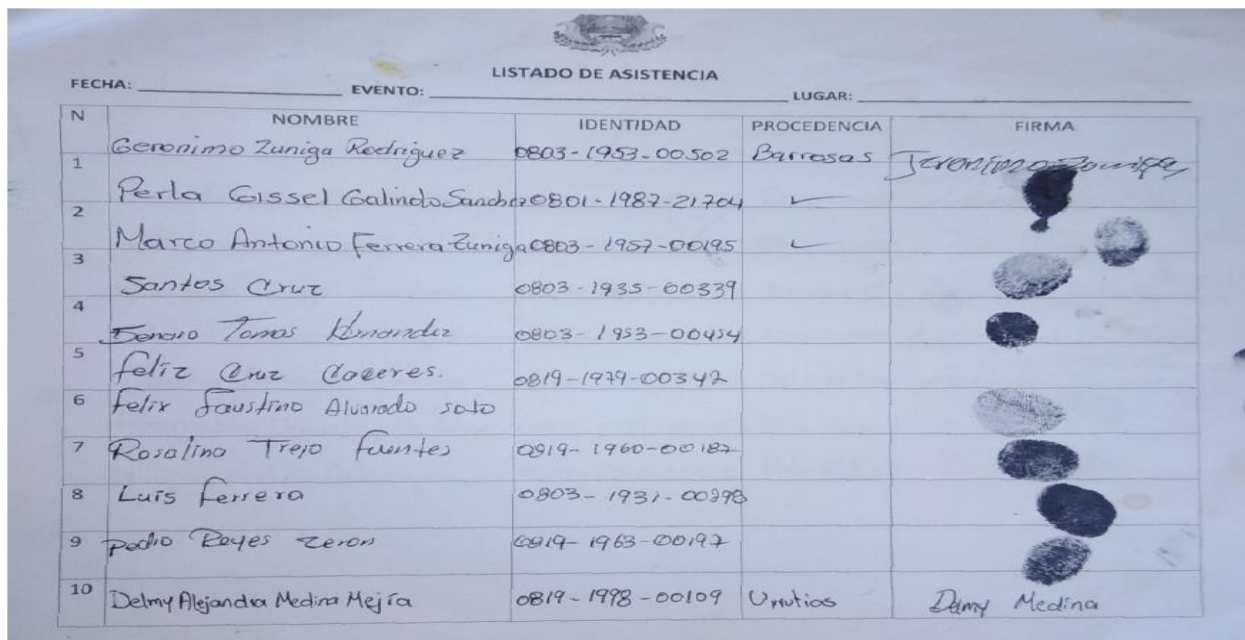 LISTADO DE ASISTENCIA
FECHA: EVENTO: LUGAR:
N NOMBRE IDENTIDAD PROCEDENCIA FIRMA
1 Geronimo Zuniga Rodriguez 0803-1953-00502 Barrosas Jeronimo Zuniga
2 Perla Gissel Galindo Sanchez 0801-1987-21704
3 Marco Antonio Ferrera Zuniga 0803-1957-00195
4 Santos Cruz 0803-1935-00339
5 Tomas 0803-1953-00454
6 feliz Cruz Caceres. 0819-1979-00342
felix faustino Alvarado soto
7 Rosalino Trejo fuentes 0819-1960-00187
8 Luis ferrera 0803-1931-00298
9 Pedro Reyes Zeron 0819-1963-00197
10 Delmy Alejandra Medina Mejía 0819-1998-00109 Urrutias Delmy Medina